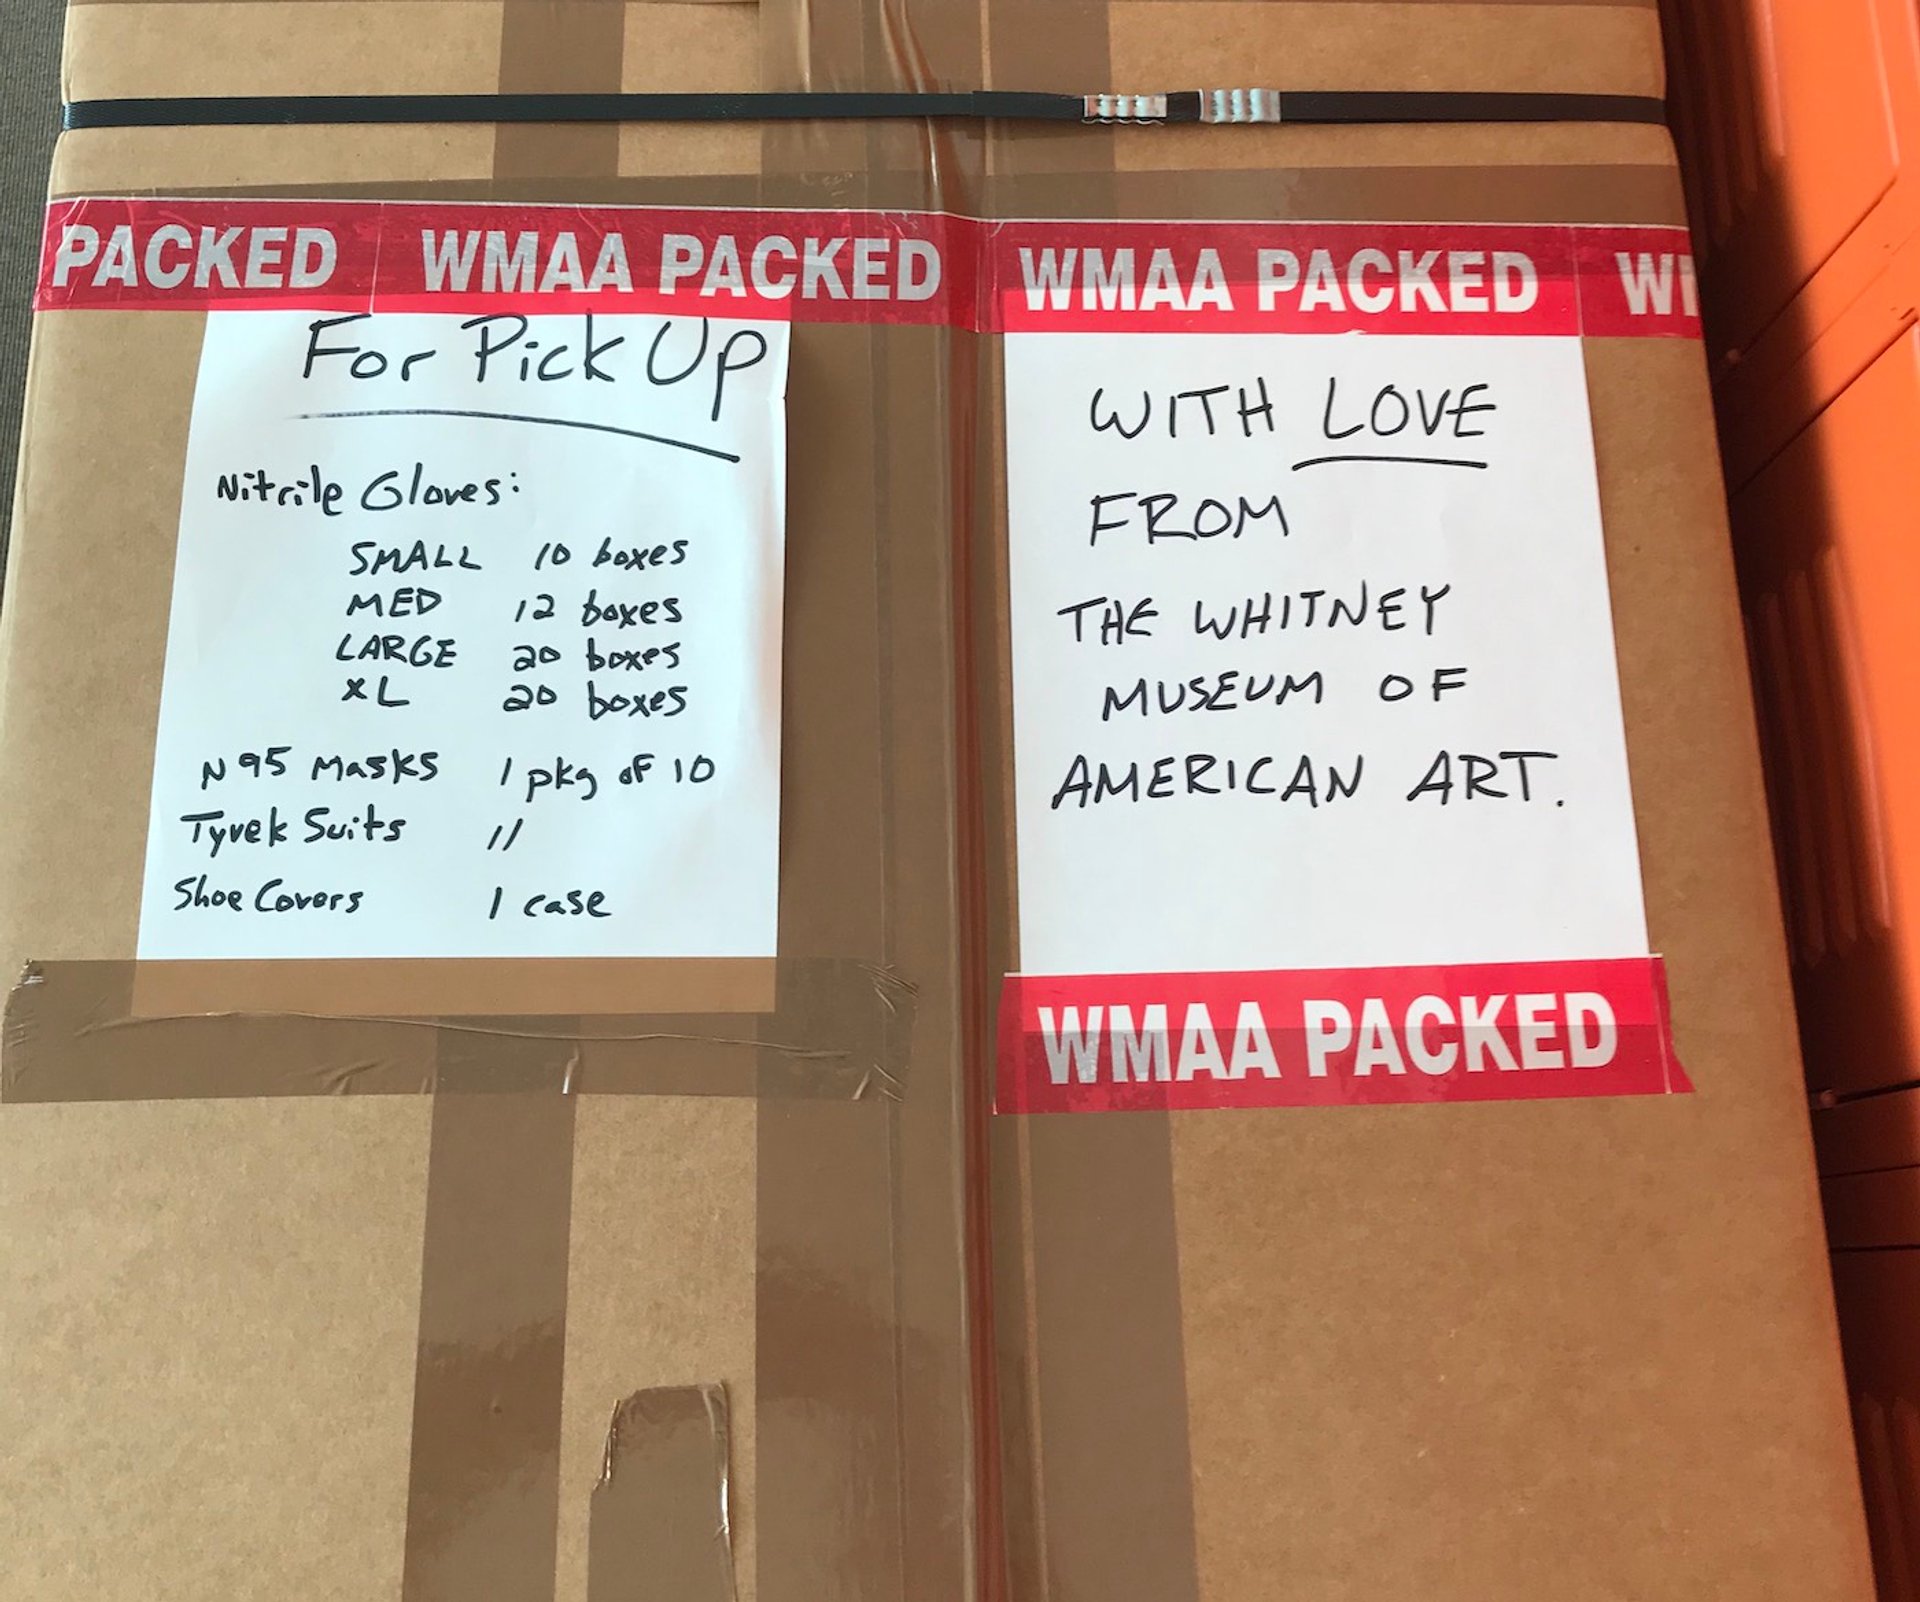 PACKED WMAA PACKED WMAA PACKED
For Pick Up
Nitrile Gloves:
SMALL 10 boxes
MED 12 boxes
LARGE 20 boxes
XL 20 boxes
N95 Masks 1 pkg of 10
Tyvek Suits "
Shoe Covers 1 case
WITH LOVE
FROM
THE WHITNEY
MUSEUM OF
AMERICAN ART.
WMAA PACKED